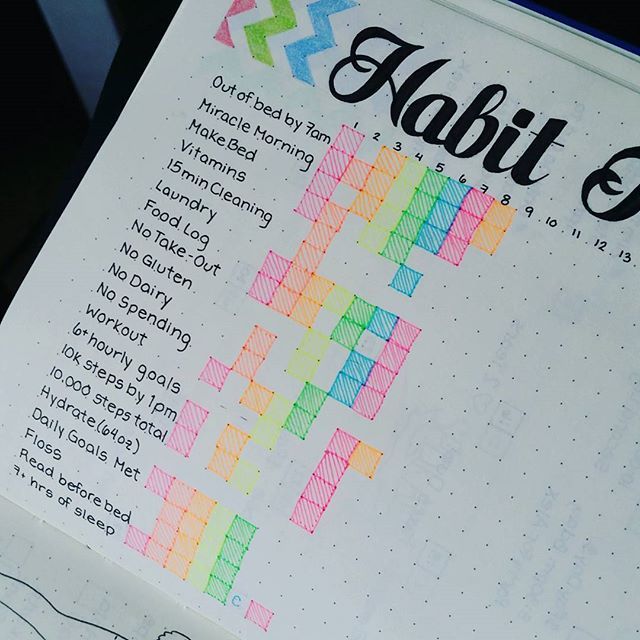 Habit
1 2 3 4 5 6 7 8 9 10 11 12 13
Out of bed by 7am
Miracle Morning
Make Bed
Vitamins
15 min Cleaning
Laundry
Food Log
No Take-Out
No Gluten
No Dairy
No Spending
Workout
6+ hourly goals
10k steps by 1pm
10,000 steps total
Hydrate (64oz)
Daily Goals Met
Floss
Read before bed
7+ hrs of sleep